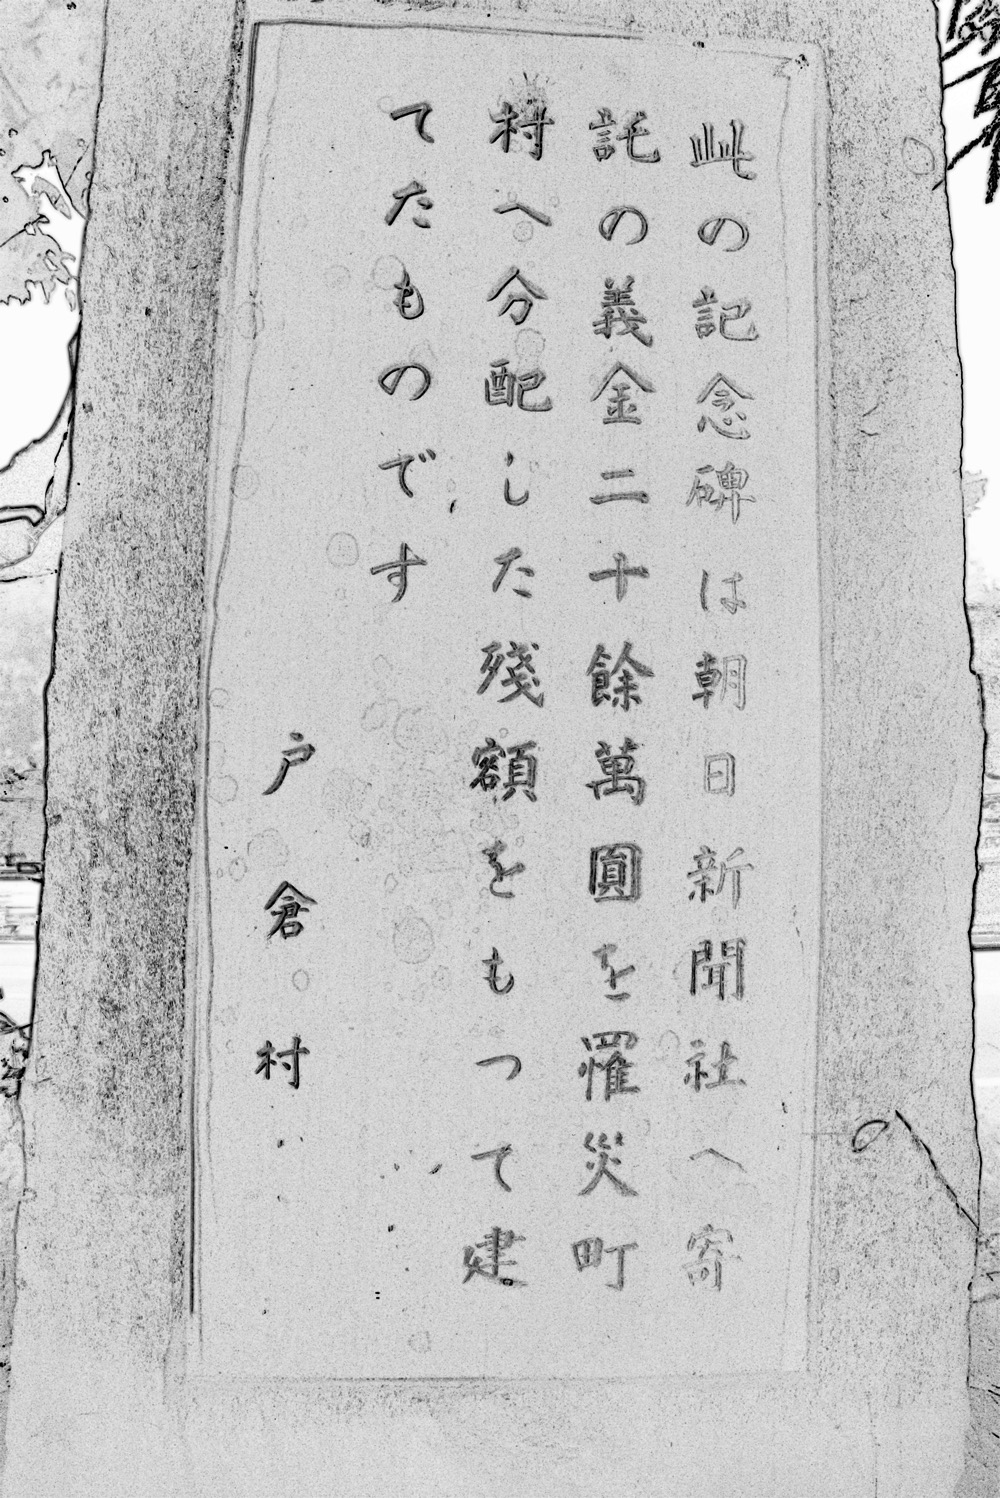 此の記念碑は朝日新聞社へ寄
託の義金二十餘萬圓を罹災町
村へ分配した殘額をもつて建
てたものです
戸倉村